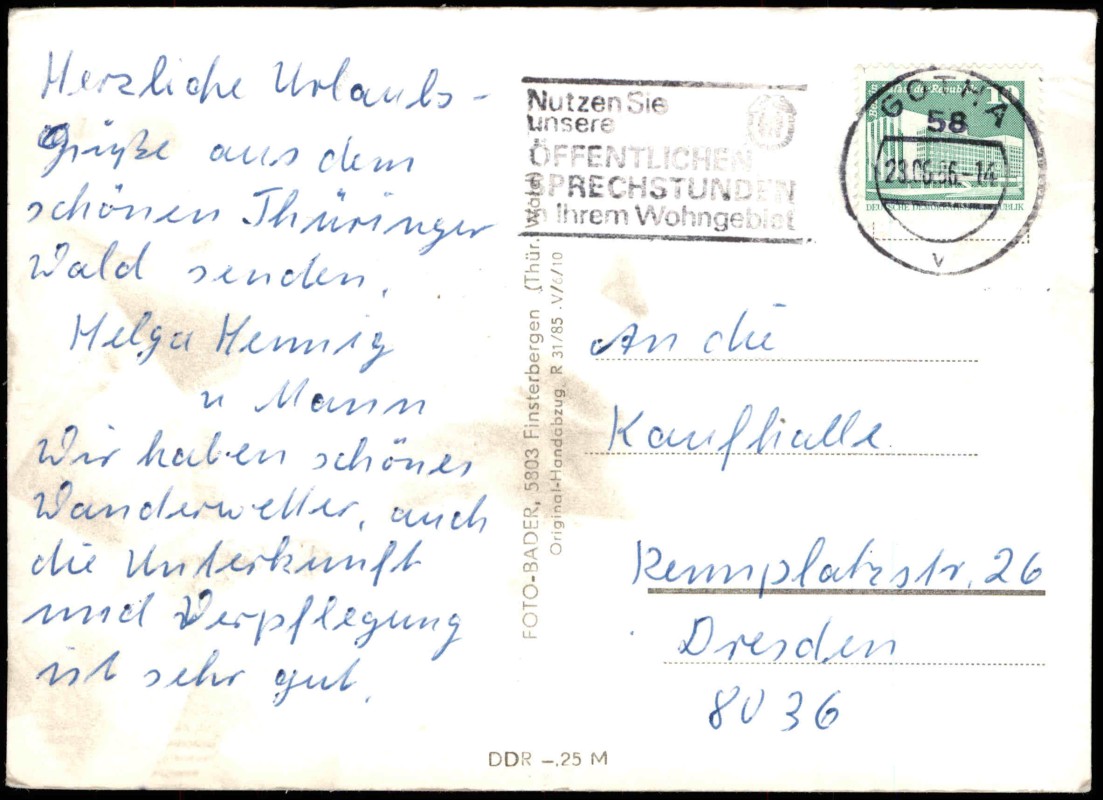 Herzliche Urlaubs-
grüße aus dem
schönen Thüringer
Wald senden.
Helga Hennig
u Mann
Wir haben schönes
Wanderwetter, auch
die Unterkunft
und Verpflegung
ist sehr gut.
Nutzen Sie
unsere
ÖFFENTLICHEN
SPRECHSTUNDEN
in Ihrem Wohngebiet
10
GOTHA
58
23.06.86.-14
V
DEUTSCHE DEMOKRATISCHE REPUBLIK
FOTO-BADER, 5803 Finsterbergen (Thür. Wald)
Original-Handabzug. R 31/85 .V/6/10
An die
Kaufhalle
Rennplatzstr. 26
Dresden
8036
DDR –.25 M